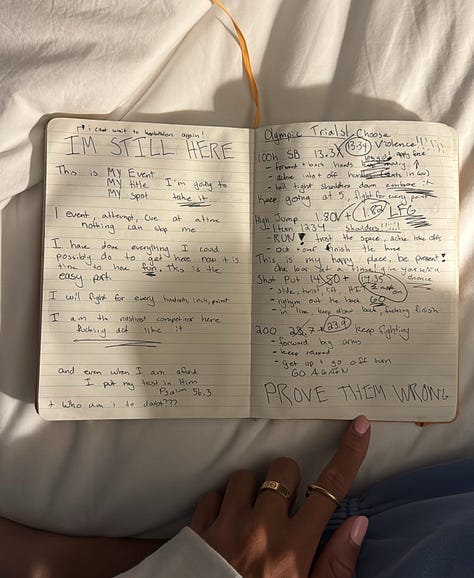 i cant wait to heptathlon again!
IM STILL HERE
This is MY Event
MY title I'm going to
MY Spot take it
1 event, attempt, cue at a time
nothing can stop me
I have done everything I could
possibly do to get here now it is
time to have fun. This is the
easy part
I will fight for every hundredth, inch, point
I am the nastiest competitor here
fucking act like it
and even when I am afraid
I put my trust in Him
Psalm 56:3
+ Who am i to doubt???
Olympic Trials! Choose
Violence!!!!!
100h SB 13.3 13.34
- forward + back hands
- active into + off
- tall tight shoulders down
keep going at 5, fight for every point
High Jump 1.80 + 1.82 LFG
1 turn 1234 shoulders!!!!
- RUN! trust the space,
- out + over finish the
This is my happy place, be present!
one bar at a time
Shot Put 14.80 + 14.35
- slide, turn,
- out the back GO
- in line, keep back, fucking finish
200 23.7 + 23.9 keep fighting
- forward big arms
- keep
- get up + go off turn
GO AGAIN
PROVE THEM WRONG